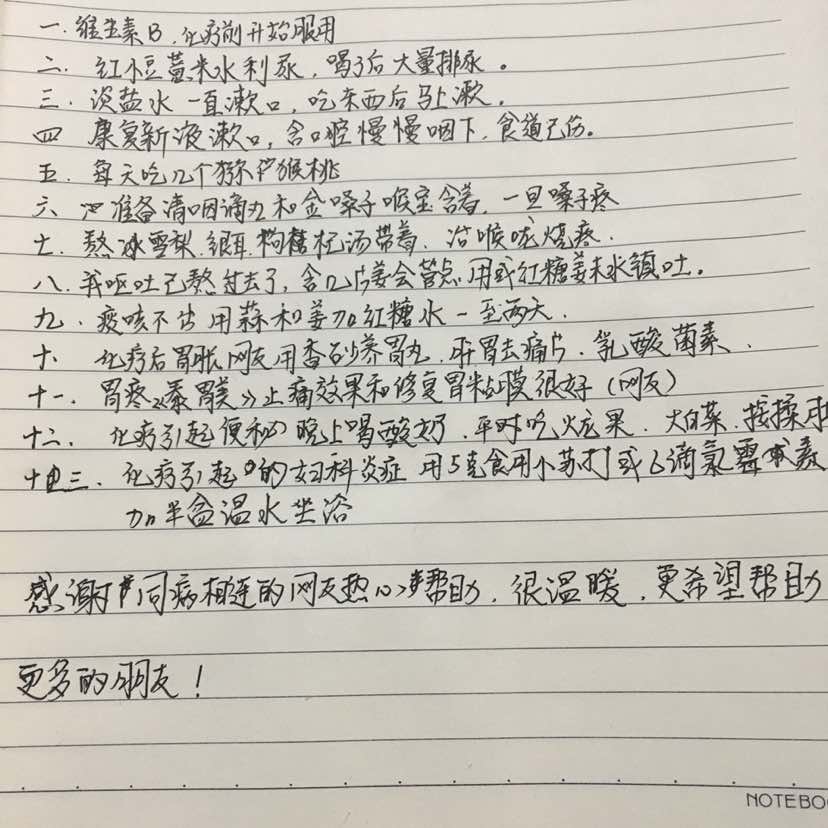 一.维生素B,化疗前开始服用
二.红小豆薏米水利尿,喝了后大量排尿。
三.淡盐水一直漱口,吃东西后马上漱.
四 康复新液漱口,含口腔慢慢咽下.食道已伤。
五.每天吃几个猕猴桃
六.准备清咽滴丸和金嗓子喉宝含着,一旦嗓子疼
七.熬冰雪梨.银耳.枸杞汤带着.治喉咙烧疼.
八.我呕吐已熬过去了,含几片姜会管点用或红糖姜末水镇吐。
九.痰咳不出用蒜和姜加红糖水一至两天.
十.化疗后胃胀网友用香砂养胃丸.肝胃去痛片.乳酸菌素.
十一.胃疼《养胃美》止痛效果和修复胃粘膜很好(网友)
十二.化疗引起便秘晚上喝酸奶.平时吃火龙果.大白菜.按揉
十三.化疗引起的妇科炎症 用5克食用小苏打或6滴氯霉素
加半盆温水坐浴
感谢同病相连的网友热心帮助.很温暖.更希望帮助
更多的朋友!
NOTEBO